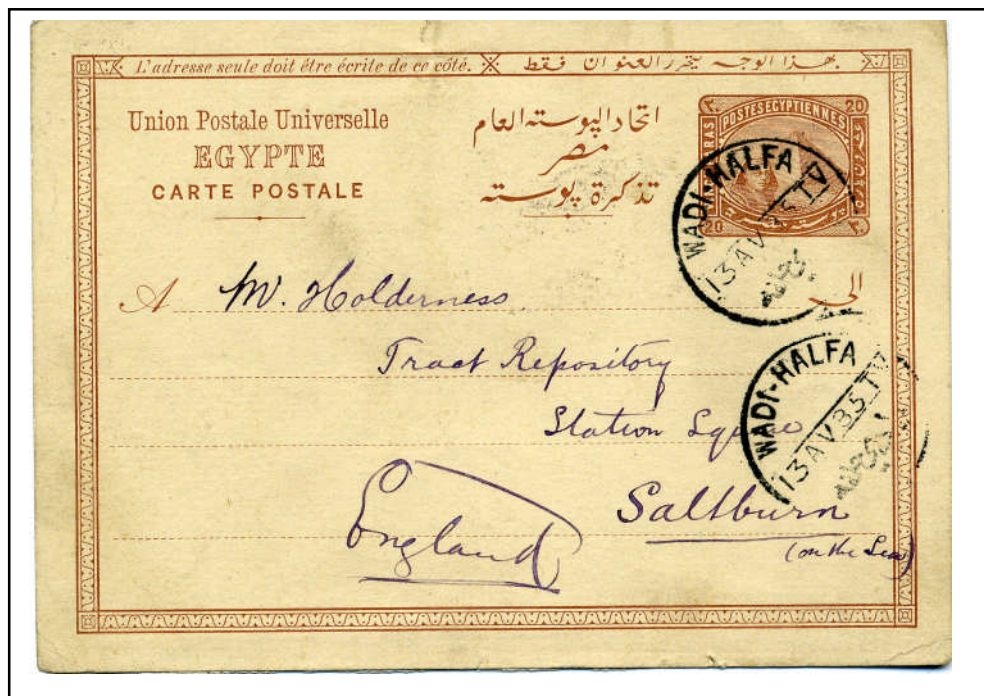 L'adresse seule doit être écrite de ce côté. بهذا الوجه يتحرر العنوان فقط
Union Postale Universelle
EGYPTE
CARTE POSTALE
اتحاد البوسته العام
مصر
تذكرة بوسته
POSTES EGYPTIENNES
20 ٢٠
20 ٢٠
WADI-HALFA
13 AV 85 TV
الى
A Mr. Holderness
Tract Repository
Station Square
Saltburn
(on the Sea)
England
WADI-HALFA
13 AV 85 TV